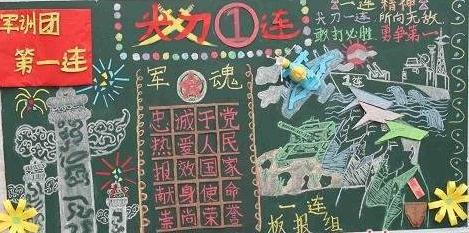 军训团
第一连
尖刀①连
一连 精神
尖刀一连 所向无敌
敢打必胜 勇争第一
军魂
忠诚于党
热爱人民
报效国家
献身使命
崇尚荣誉
1连
一连
板报组